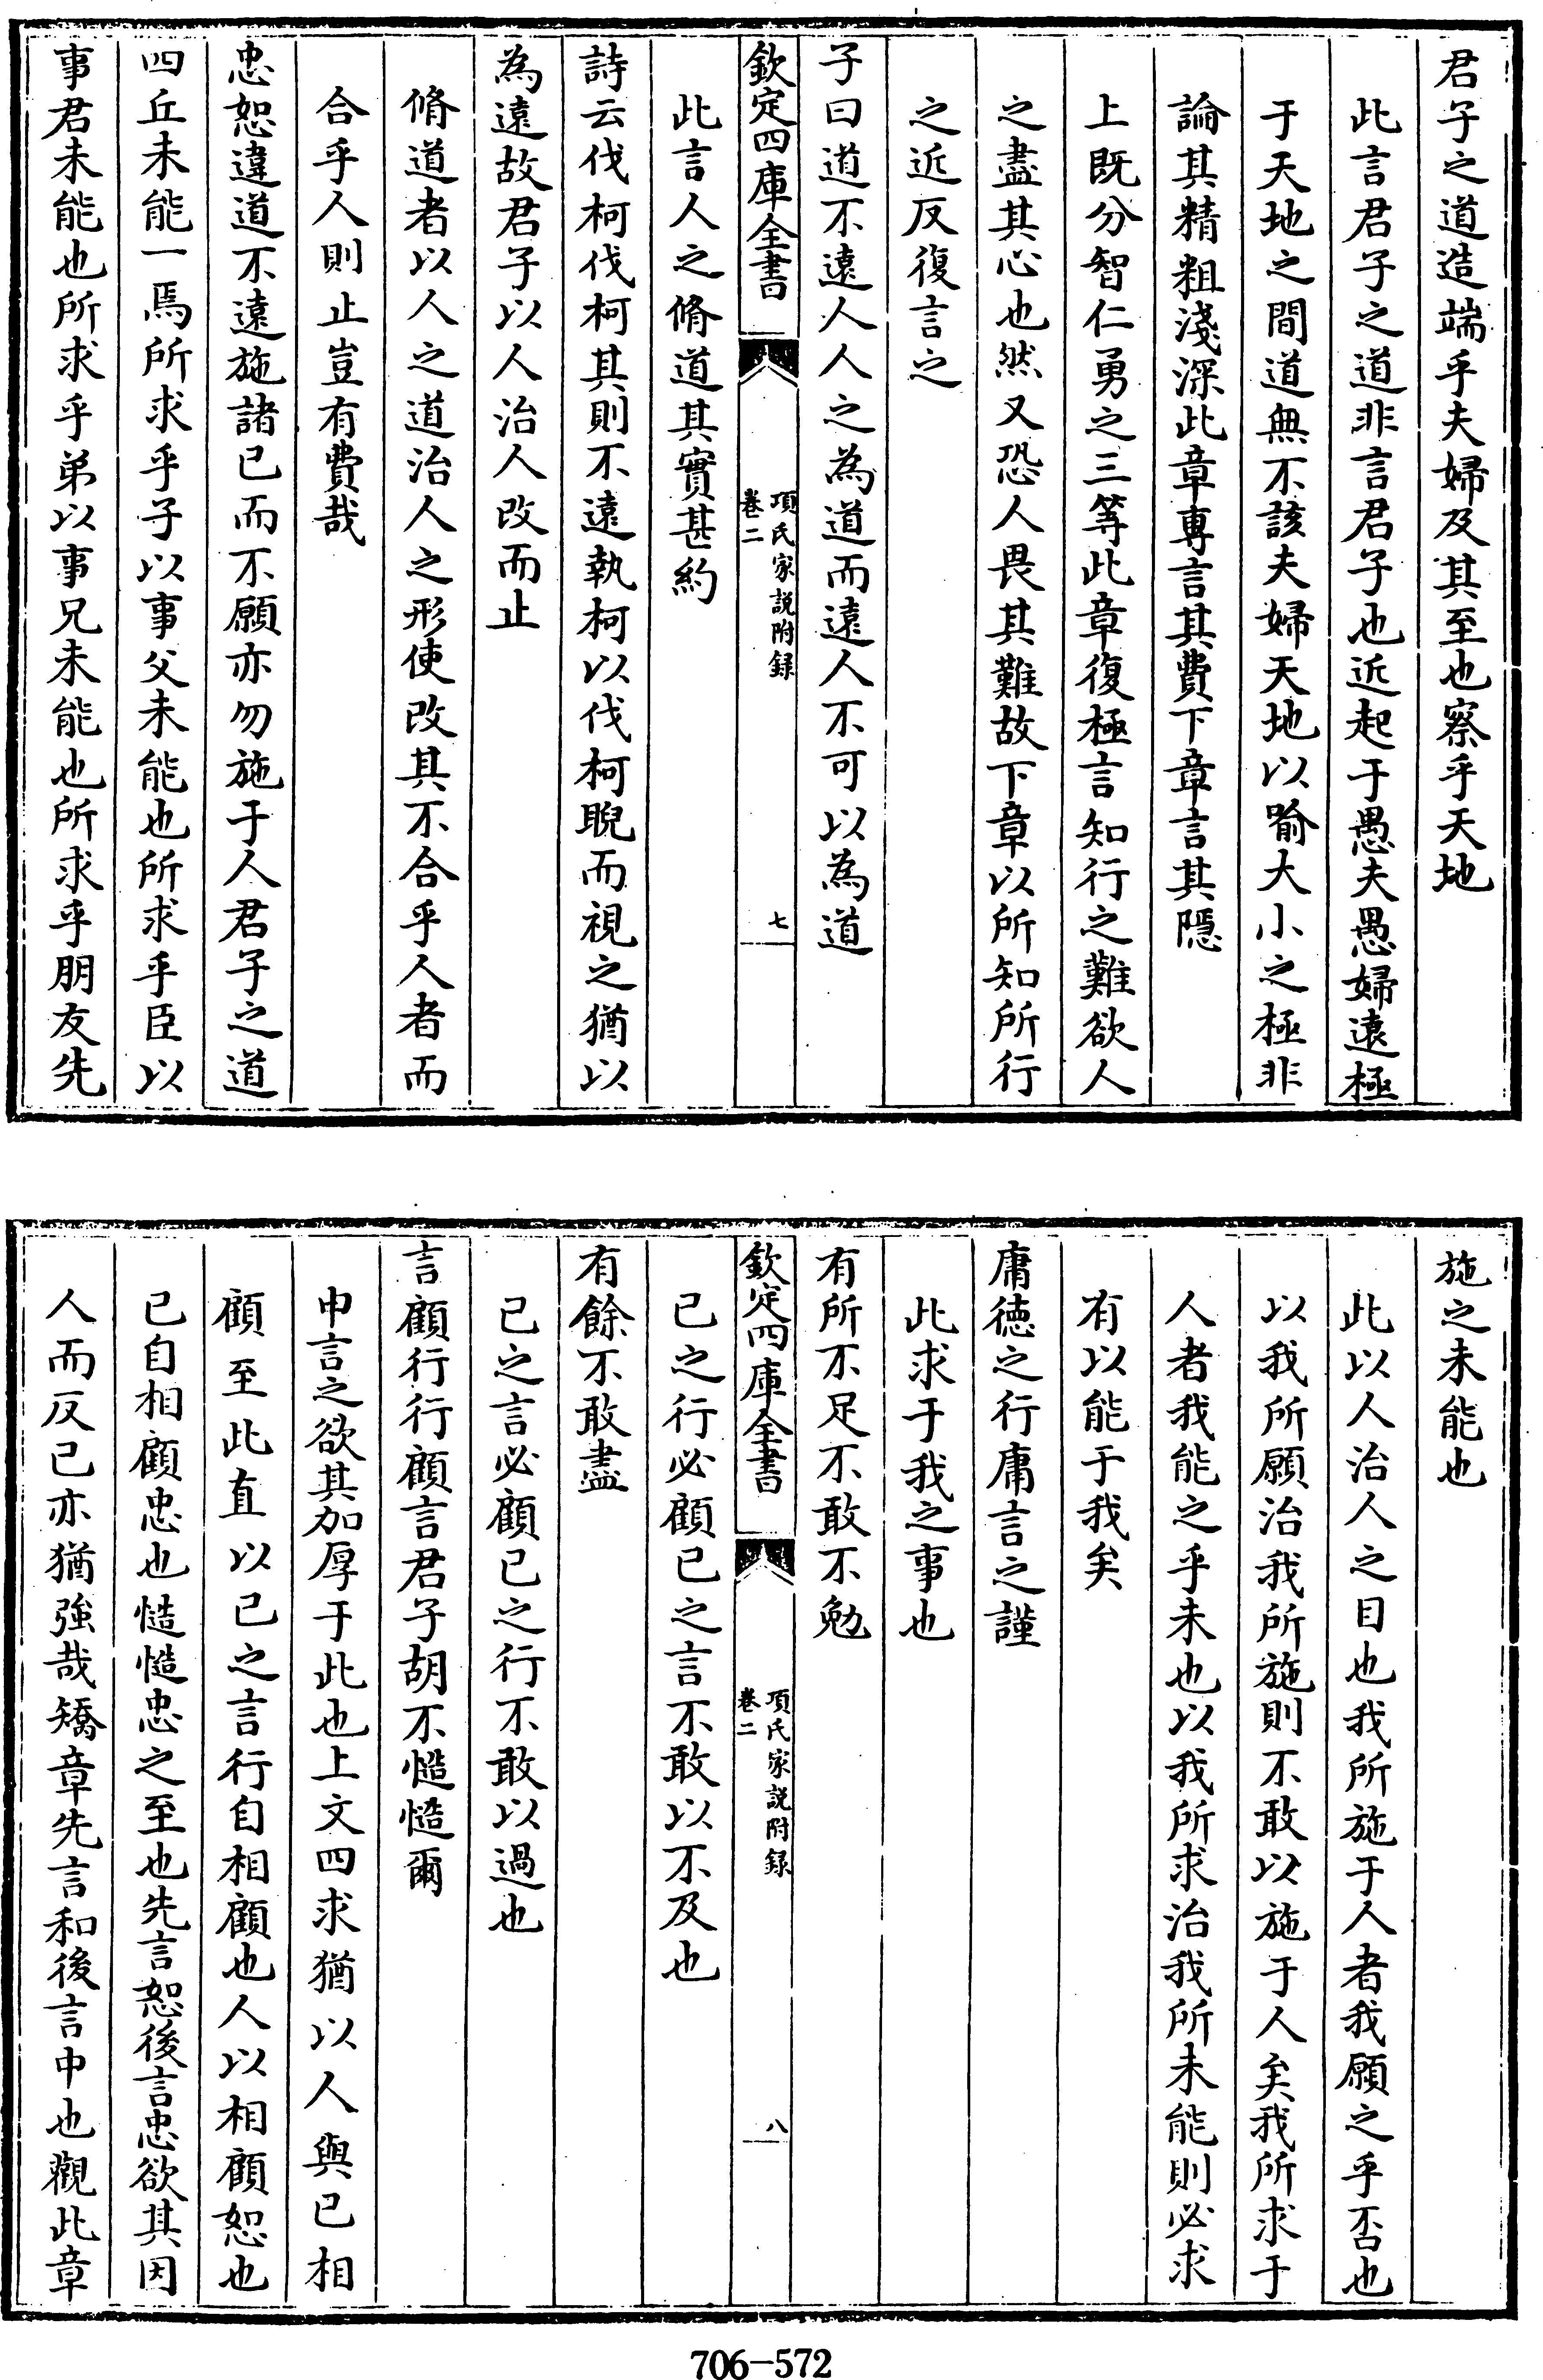 君子之道造端乎夫婦及其至也察乎天地
此言君子之道非言君子也近起于愚夫愚婦遠極
于天地之間道無不該夫婦天地以喻大小之極非
論其精粗淺深此章專言其費下章言其隱
上既分智仁勇之三等此章復極言知行之難欲人
之盡其心也然又恐人畏其難故下章以所知所行
之近反復言之
子曰道不遠人人之為道而遠人不可以為道
欽定四庫全書
項氏家説附録
卷二
七
此言人之脩道其實甚約
詩云伐柯伐柯其則不遠執柯以伐柯睨而視之猶以
為遠故君子以人治人改而止
脩道者以人之道治人之形使改其不合乎人者而
合乎人則止豈有費哉
忠恕違道不遠施諸已而不願亦勿施于人君子之道
四丘未能一焉所求乎子以事父未能也所求乎臣以
事君未能也所求乎弟以事兄未能也所求乎朋友先
施之未能也
此以人治人之目也我所施于人者我願之乎否也
以我所願治我所施則不敢以施于人矣我所求于
人者我能之乎未也以我所求治我所未能則必求
有以能于我矣
庸徳之行庸言之謹
此求于我之事也
有所不足不敢不勉
欽定四庫全書
項氏家説附録
卷二
八
已之行必顧已之言不敢以不及也
有餘不敢盡
已之言必顧已之行不敢以過也
言顧行行顧言君子胡不慥慥爾
申言之欲其加厚于此也上文四求猶以人與已相
顧至此直以已之言行自相顧也人以相顧恕也
已自相顧忠也慥慥忠之至也先言恕後言忠欲其因
人而反已亦猶強哉矯章先言和後言中也觀此章
706-572